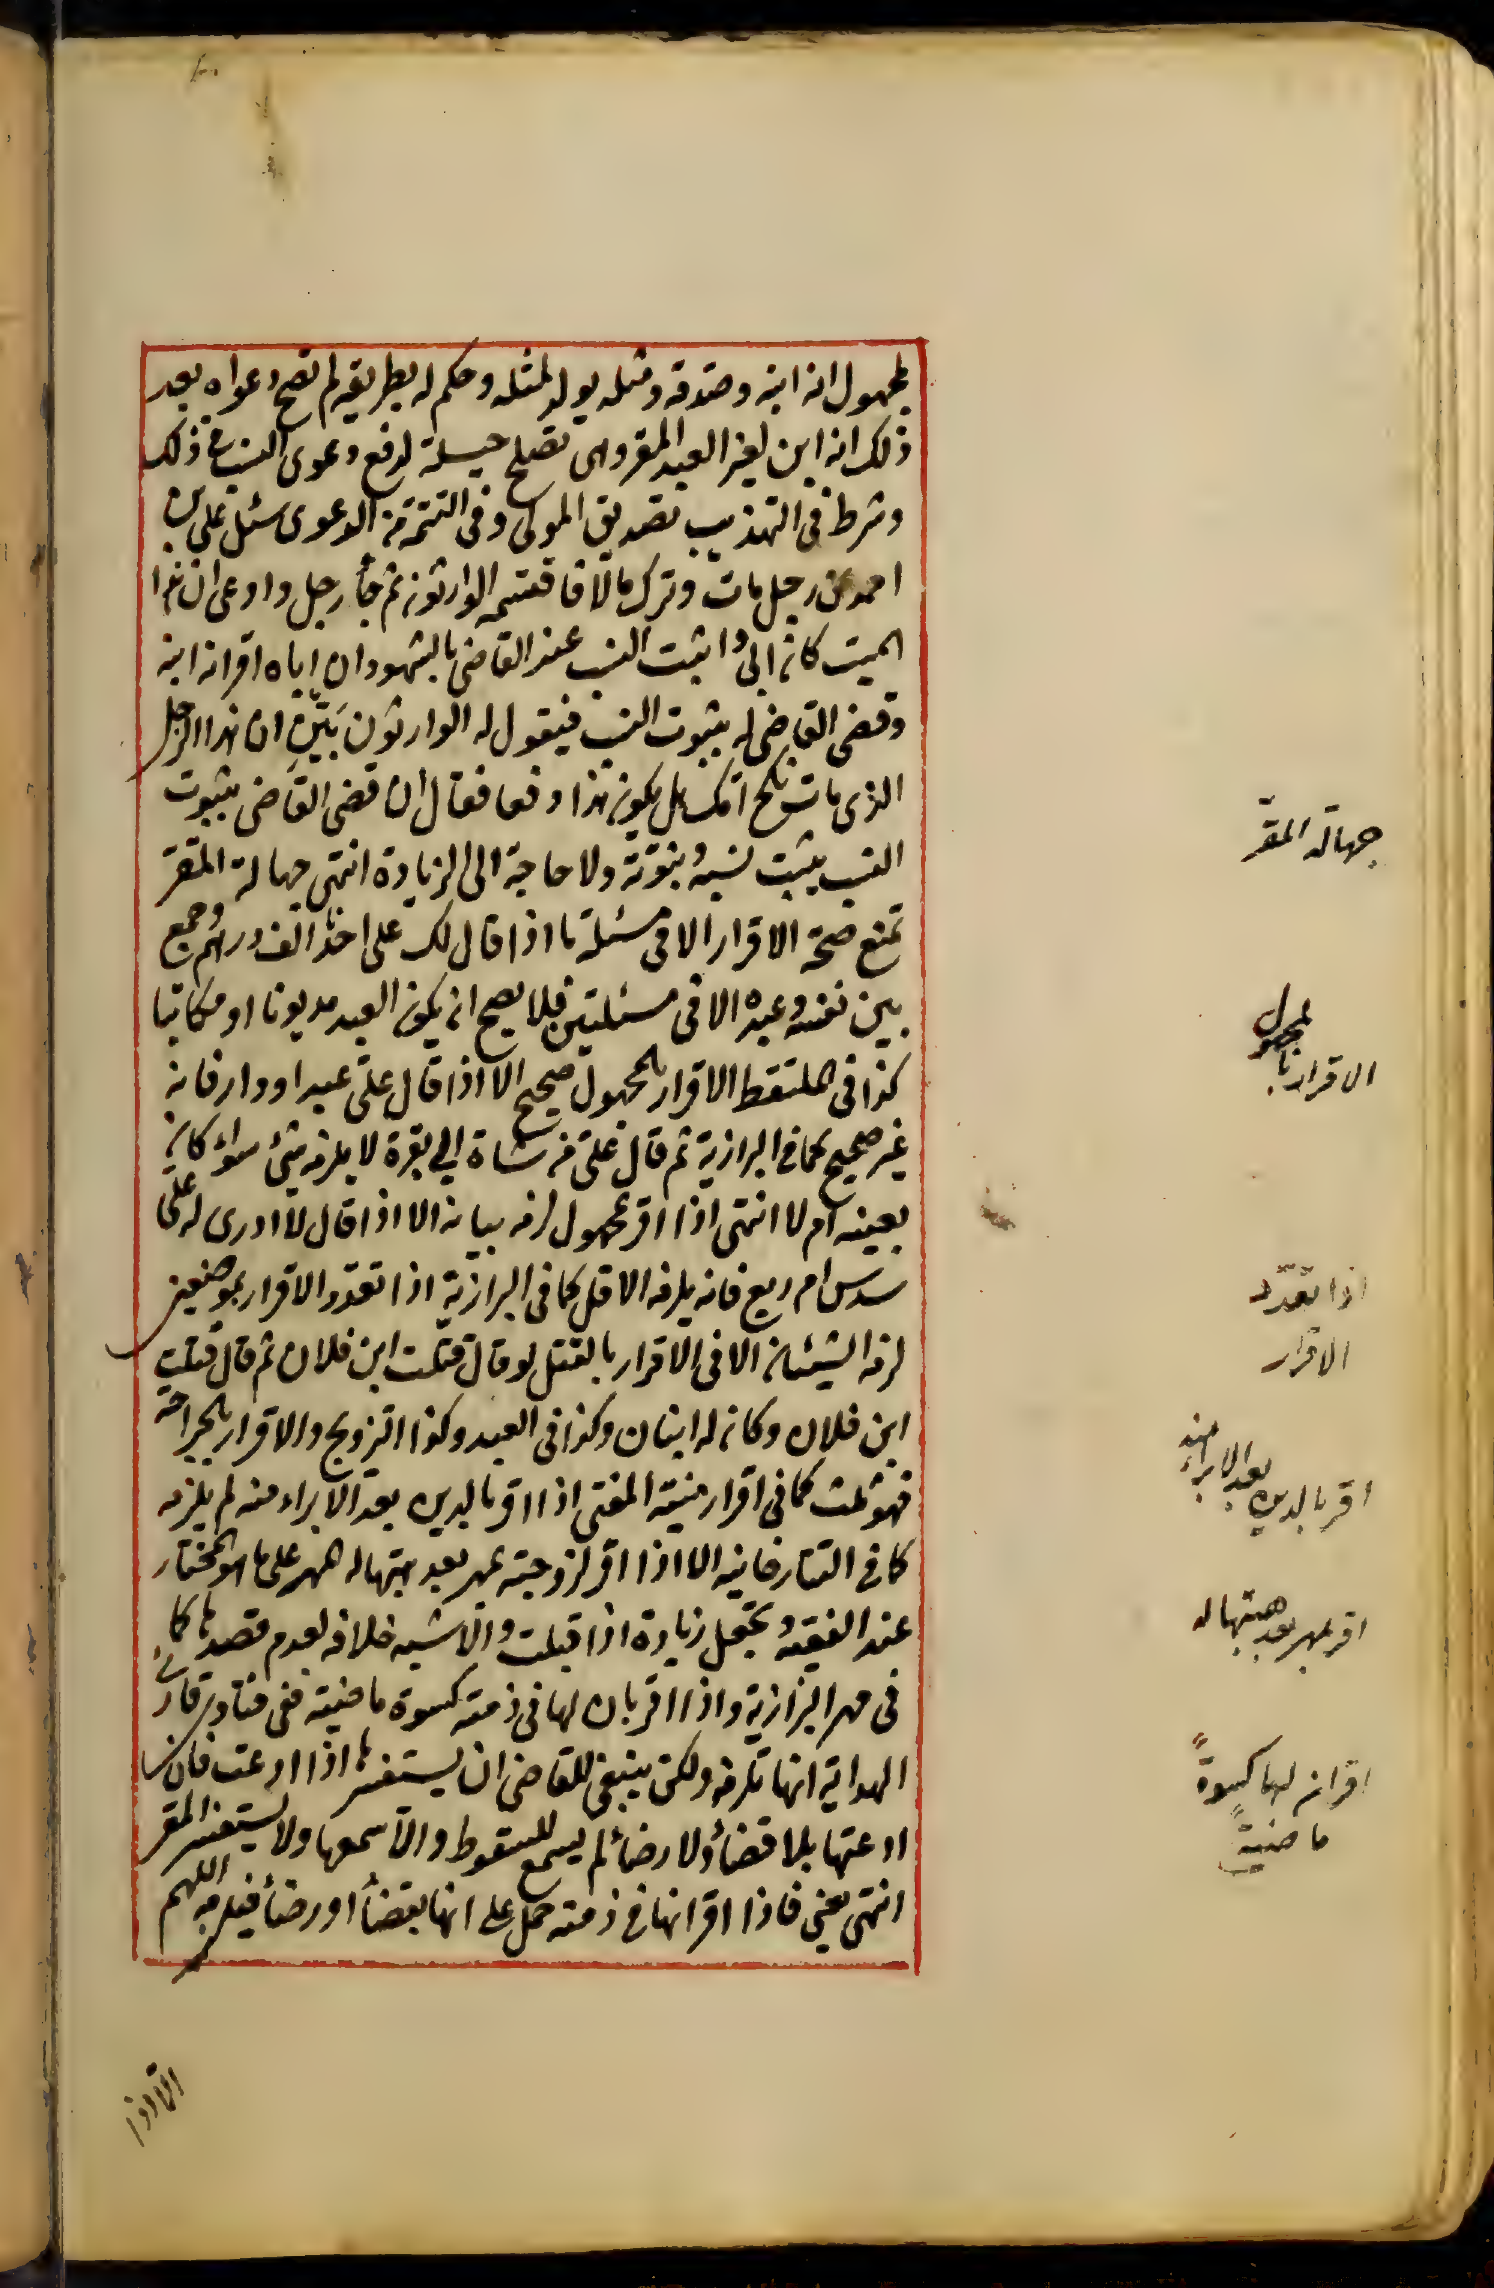 لمجهول انه ابنه وصدقه ومثله يولد لمثله وحكم له بطريقه لم تصح دعواه بعد
ذلك انه ابن لغير العبد المقر وهى تصلح حيلة لدفع دعوى النسب ذلك
وشرط فى التهذيب تصديق المولى وفى التتمة من الدعوى سئل على بن
احمد عن رجل مات وترك مالا فاقتسمه الوارثون ثم جأ رجل وادعى ان هذا
الميت كان ابى واثبت النسب عند القاضى بالشهود ان اباه اقر انه ابنه
وقضى القاضى له بثبوت النسب فيقول له الوارثون بَيِّن ان هذا الرجل
الذى مات نكح امك هل يكون هذا دفعا فقال ان قضى القاضى بثبوت
النسب يثبت نسبه وبنوّته ولا حاجة الى الزيادة انتهى جهالة المقر
تمنع صحة الاقرار الا فى مسئلة ما اذا قال لك على احدنا الف درهم وجمع
بين نفسه وعبده الا فى مسئلتين فلا يصح ان يكون العبد مديونا او مكاتبا
كذا فى الملتقط الاقرار بالمجهول صحيح الا اذا قال علىّ عبد او دار فانه
غير صحيح كما فى البزازية ثم قال علىّ من شاة الى بقرة لا يلزمه شئ سواء كان
بعينه ام لا انتهى اذا اقر بمجهول لزمه بيانه الا اذا قال لا ادرى له علىّ
سدس ام ربع فانه يلزمه الاقل كما فى البزازية اذا تعدد الاقرار بموضعين
لزمه الشيئان الا فى الاقرار بالقتل لو قال قتلت ابن فلان ثم قال قتلت
ابن فلان وكان له ابنان وكذا فى العبد وكذا التزويج والاقرار بالجراحة
فهو ثلث كما فى اقرار منية المفتى اذا اقر بالدين بعد الابراء منه لم يلزمه
كما فى التتارخانيه الا اذا اقر لزوجته بمهر بعد هبتها له المهر على ما هو المختار
عند الفقيه ويجعل زيادة اذا قبلت والاشبه خلافه لعدم قصدها كما
فى مهر البزازية واذا اقر بان لها فى ذمته كسوة ماضية ففى فتاوى قارئ
الهداية انها تلزمه ولكن ينبغى للقاضى ان يستفسرها اذا ادعت فان
ادعتها بلا قضأ ولا رضأ لم يسمع للسقوط والا سمعها ولا يستفسر المقر
انتهى يعنى فاذا اقر انها فى ذمته حمل على انها بقضأ او رضأ فيلزمه اللهم
جهالة المقرّ
الاقرار بالمجهول
اذا تعدّد
الاقرار
اقر بالدين بعد الابراء منه
اقر بمهر بعد هبتها له
اقرانه لها كسوةً
ماضيةً
الا اذا